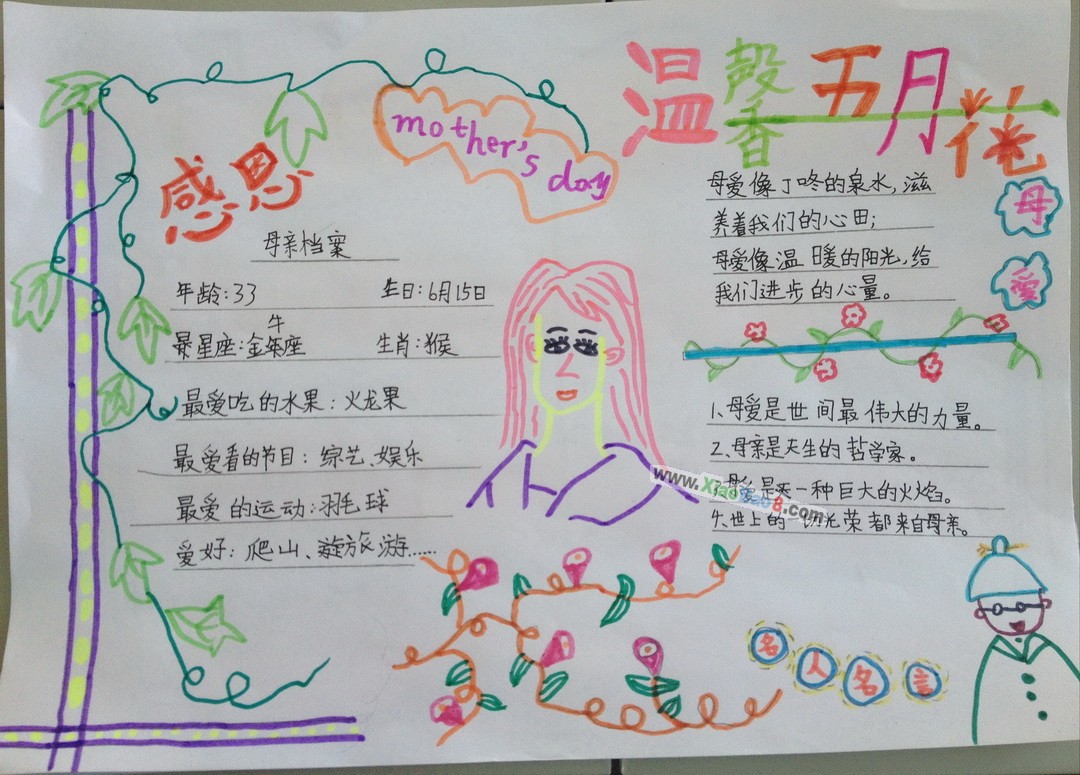 感恩
mother's day
母亲档案
年龄:33 生日:6月15日
星座:金牛座 生肖:猴
最爱吃的水果:火龙果
最爱看的节目:综艺、娱乐
最爱的运动:羽毛球
爱好:爬山、旅游……
温馨五月花
母爱像丁咚的泉水,滋
养着我们的心田;
母爱像温暖的阳光,给
我们进步的心量。
母爱
1.母爱是世间最伟大的力量。
2.母亲是天生的哲学家。
是 一种巨大的火焰。
世上的 光荣都来自母亲。
www.Xiao 8.com
名人名言